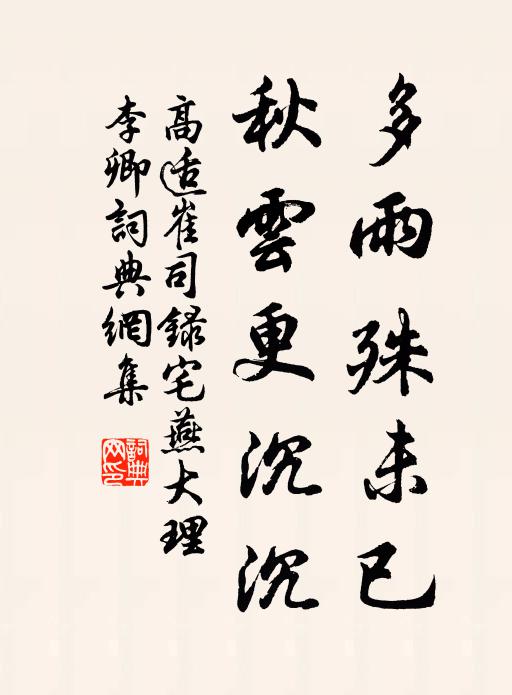 多雨殊未已
秋雲更沉沉
高适崔司錄宅燕大理
李卿詞典網集
詞典
网印